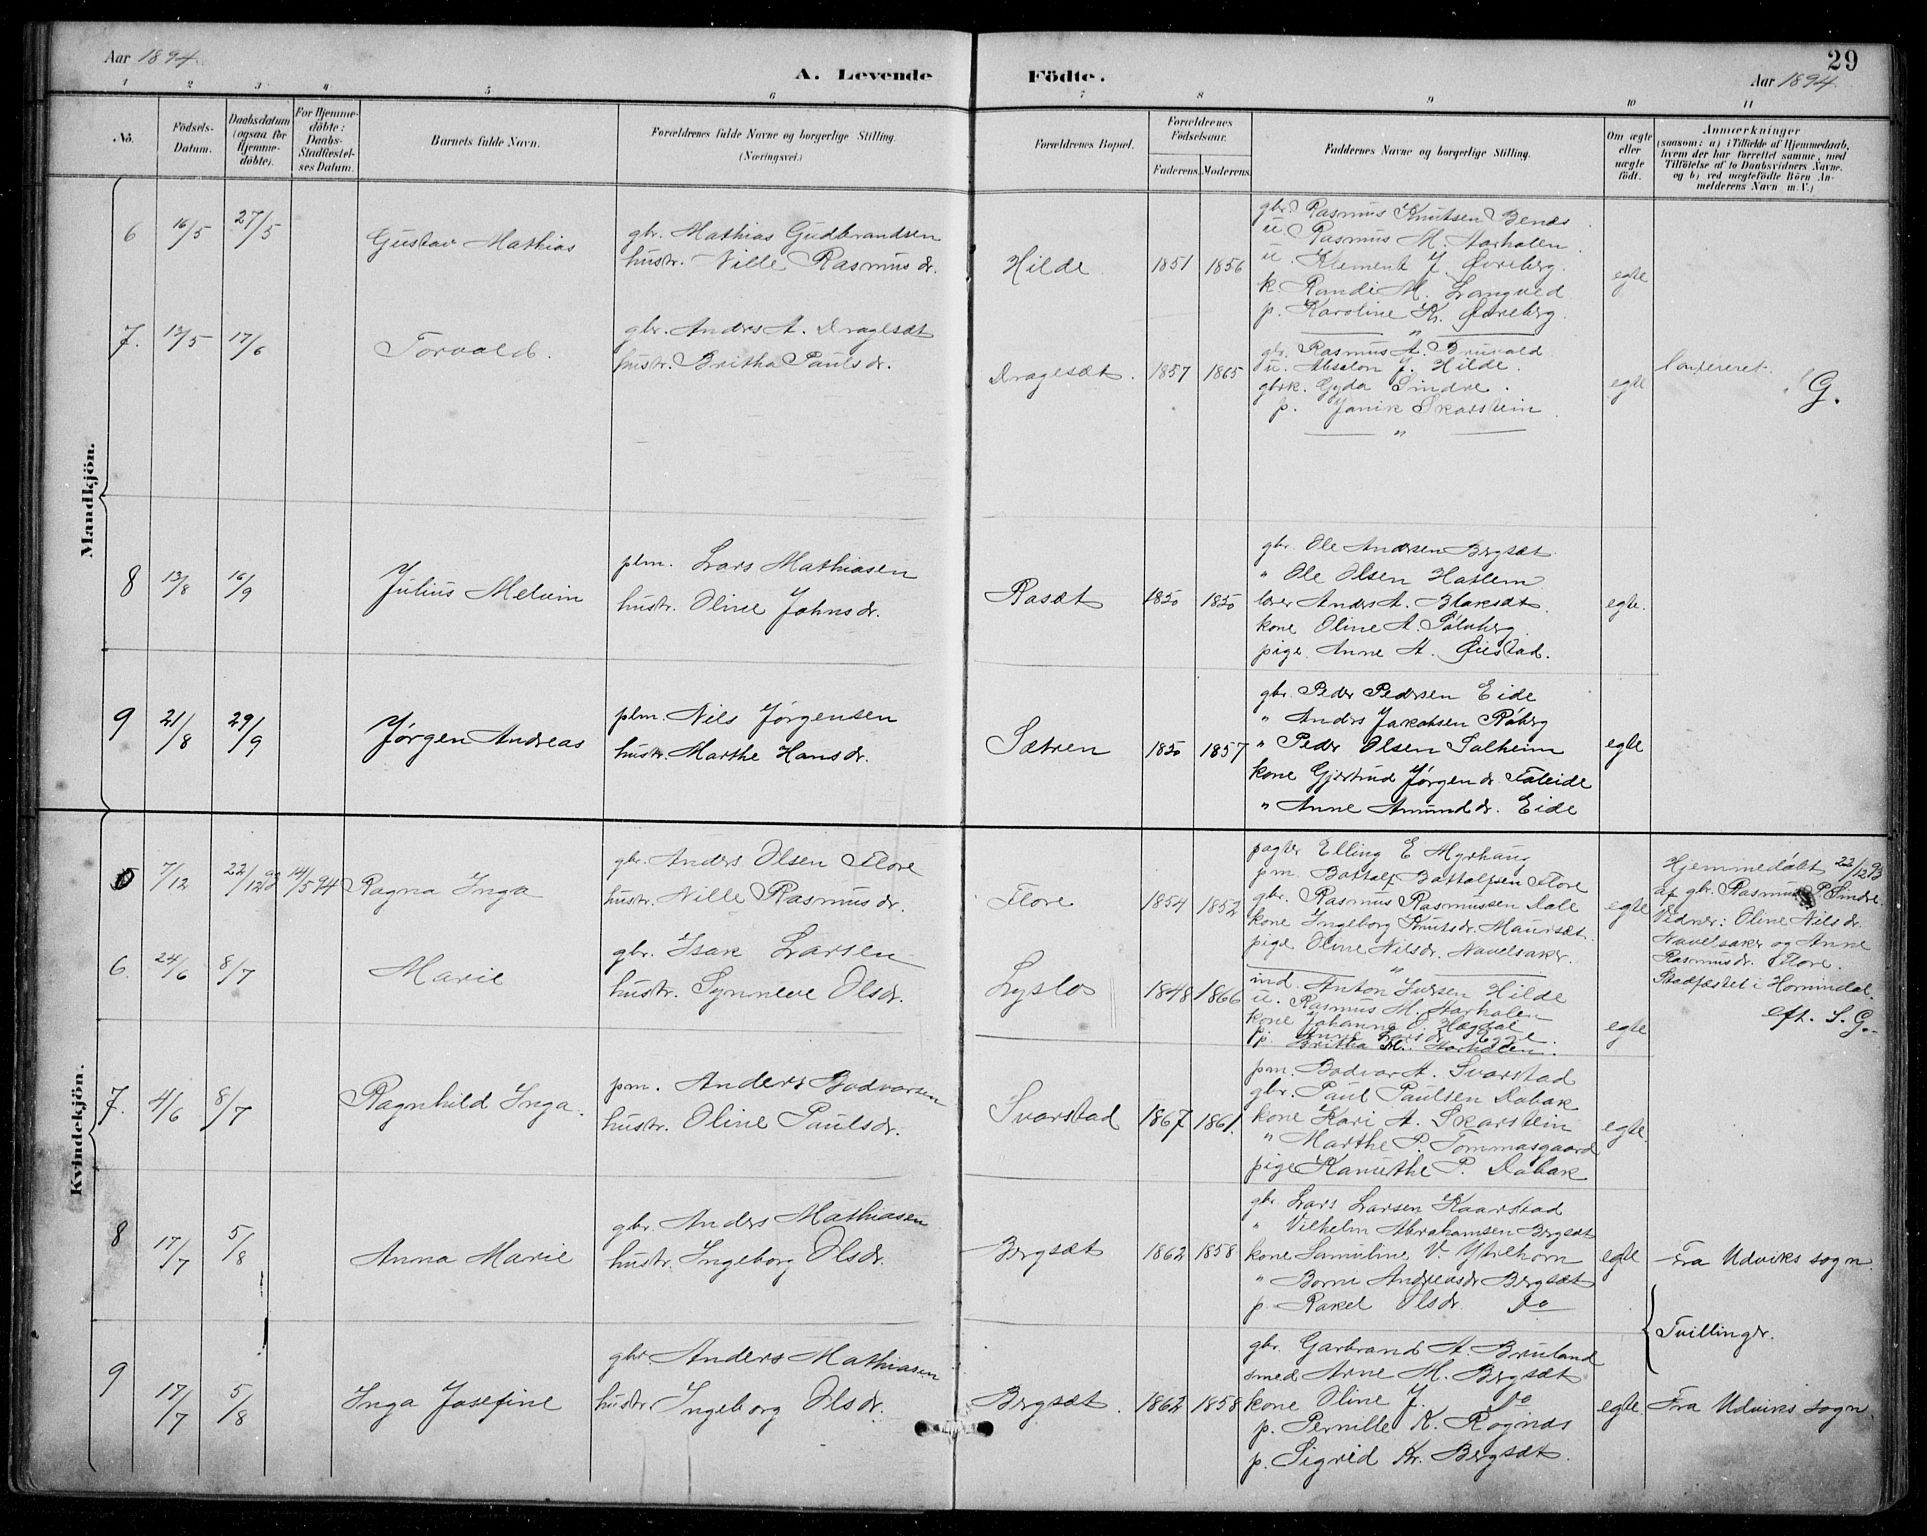 Aar 1894.
A. Levende Födte.
29
Aar 1894.
1 2 3 4 5 6 7 8 9 10 11
No.
Födsels-Datum.
Daabsdatum (ogsaa for Hjemmedöbte).
For Hjemmedöbte: Daabs-Stadfæstelses Datum.
Barnets fulde Navn.
Forældrenes fulde Navne og borgerlige Stilling.
(Næringsvei.)
Forældrenes Bopæl.
Forældrenes Födselsaar.
Faderens. Moderens.
Faddernes Navne og borgerlige Stilling.
Om ægte eller uægte födt.
Anmærkninger
(saasom: a) i Tilfælde af Hjemmedaab, hvem der har forrettet samme, med Tilföielse af to Daabsvidners Navne, og b) ved uægtefödte Börn Anmelderens Navn m. V.)
Mandkjön.
6 16/5 27/5 Gustav Mathias
gbr. Mathias Gudbrandsen
hustr. Nille Rasmusdr.
Hilde 1851 1856
gbr. Rasmus Knutsen Benæs
u. Rasmus M. Aarholen
u. Klement J. Øvreberg.
k. Randi M. Langved
p. Karoline K. Øvreberg.
egte
7. 13/5 17/6 Torvald.
gbr. Anders A. Dragesæt
hustr. Britha Paulsdr.
Dragesæt. 1857 1865
gbr. Rasmus A. Bruvold
u. Absalon J. Hilde.
gbrk. Gyda Sindre.
p. Janik Skarstein.
egte
Confereret.
G.
8 13/8 16/9 Julius Melvin
plm. Lars Mathiasen
hustr. Oline Johnsdr.
Rasæt 1850 1850
gbr. Ole Andersen Bergsæt
" Ole Olsen Hatlem
lærer Anders A. Blaksæt.
kone Oline A. Sølvberg.
pige Anne A. Øiestad.
egte.
9 21/8 29/9 Jørgen Andreas
plm. Nils Jørgensen
hustr. Marthe Hansdr.
Sætren 1850 1857
gbr. Peder Pedersen Eide
" Anders Jakobsen Råberg
" Peder Olsen Solheim
kone Gjertrud Jørgendr. Faleide
" Anne Amunddr. Eide
egte
Kvindekjön.
5 7/12 22/12 93 14/5 94 Ragna Inga
gbr. Anders Olsen Flore
hustr. Nille Rasmusdr.
Flore 1854 1852
pagter Elling E Myrhaug
pm. Bottolf Bottolfsen Flore
gbr. Rasmus Rasmussen Dale
kone Ingeborg Knutsdr. Maursæt.
pige Oline Nilsdr. Navelsaker.
egte
Hjemmedöbt 22/12 93
af gbr. Rasmus P. Sindre.
Vidner: Oline Nilsdr.
Navelsaker og Anne
Rasmusdr. Flore.
Stadfæstet i Hornindal.
eft. S. G.
6. 24/6 8/7 Marie
gbr. Isak Larsen
hustr. Synneve Olsdr.
Lyslo 1848 1866
ind. Anton Iversen Hilde
u. Rasmus M. Aarholen
kone Johanna O. Hægdal
p. Anne Larsdr. Egge.
p. Britha M. Aarholen.
egte
7. 4/6 8/7 Ragnhild Inga.
pm. Anders Bodvarsen
hustr. Oline Paulsdr.
Svarstad 1867 1861.
pm. Bodvar A. Svarstad
gbr. Paul Paulsen Dabak
kone Kari A. Skarstein
" Marthe P. Tommasgaard
pige Kanutthe P. Dabak
egte
8 17/7 5/8 Anna Marie
gbr. Anders Mathiasen
hustr. Ingeborg Olsdr.
Bergsæt 1862 1858
gbr. Lars Larsen Kaarstad
" Vilhelm Abrahamsen Bergsæt
kone Samuline V. Ytrehorn
" Borni Andreasdr. Bergsæt
p. Rakel Olsdr. Do
egte
Fra Udviks sogn.
Tvillinger.
9 17/7 5/8 Inga Josefine
gbr. Anders Mathiasen
hustr. Ingeborg Olsdr.
Bergsæt. 1862 1858
gbr. Garbrand A. Bruland
smed Arne M. Bergsæt
kone Oline J. Do
p. Pernille K. Rognæs
p. Sigrid Kr. Bergsæt.
egte.
Fra Udviks sogn.